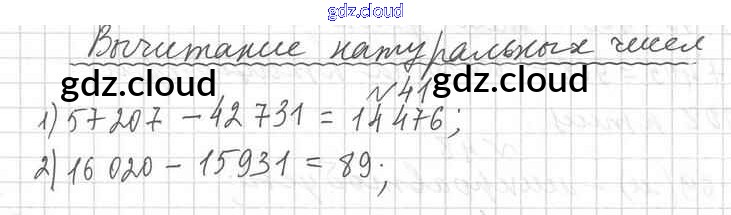 gdz.cloud
Вычитание натуральных чисел
gdz.cloud gdz.cloud
№41
1) 57207 - 42731 = 14476;
2) 16020 - 15931 = 89;